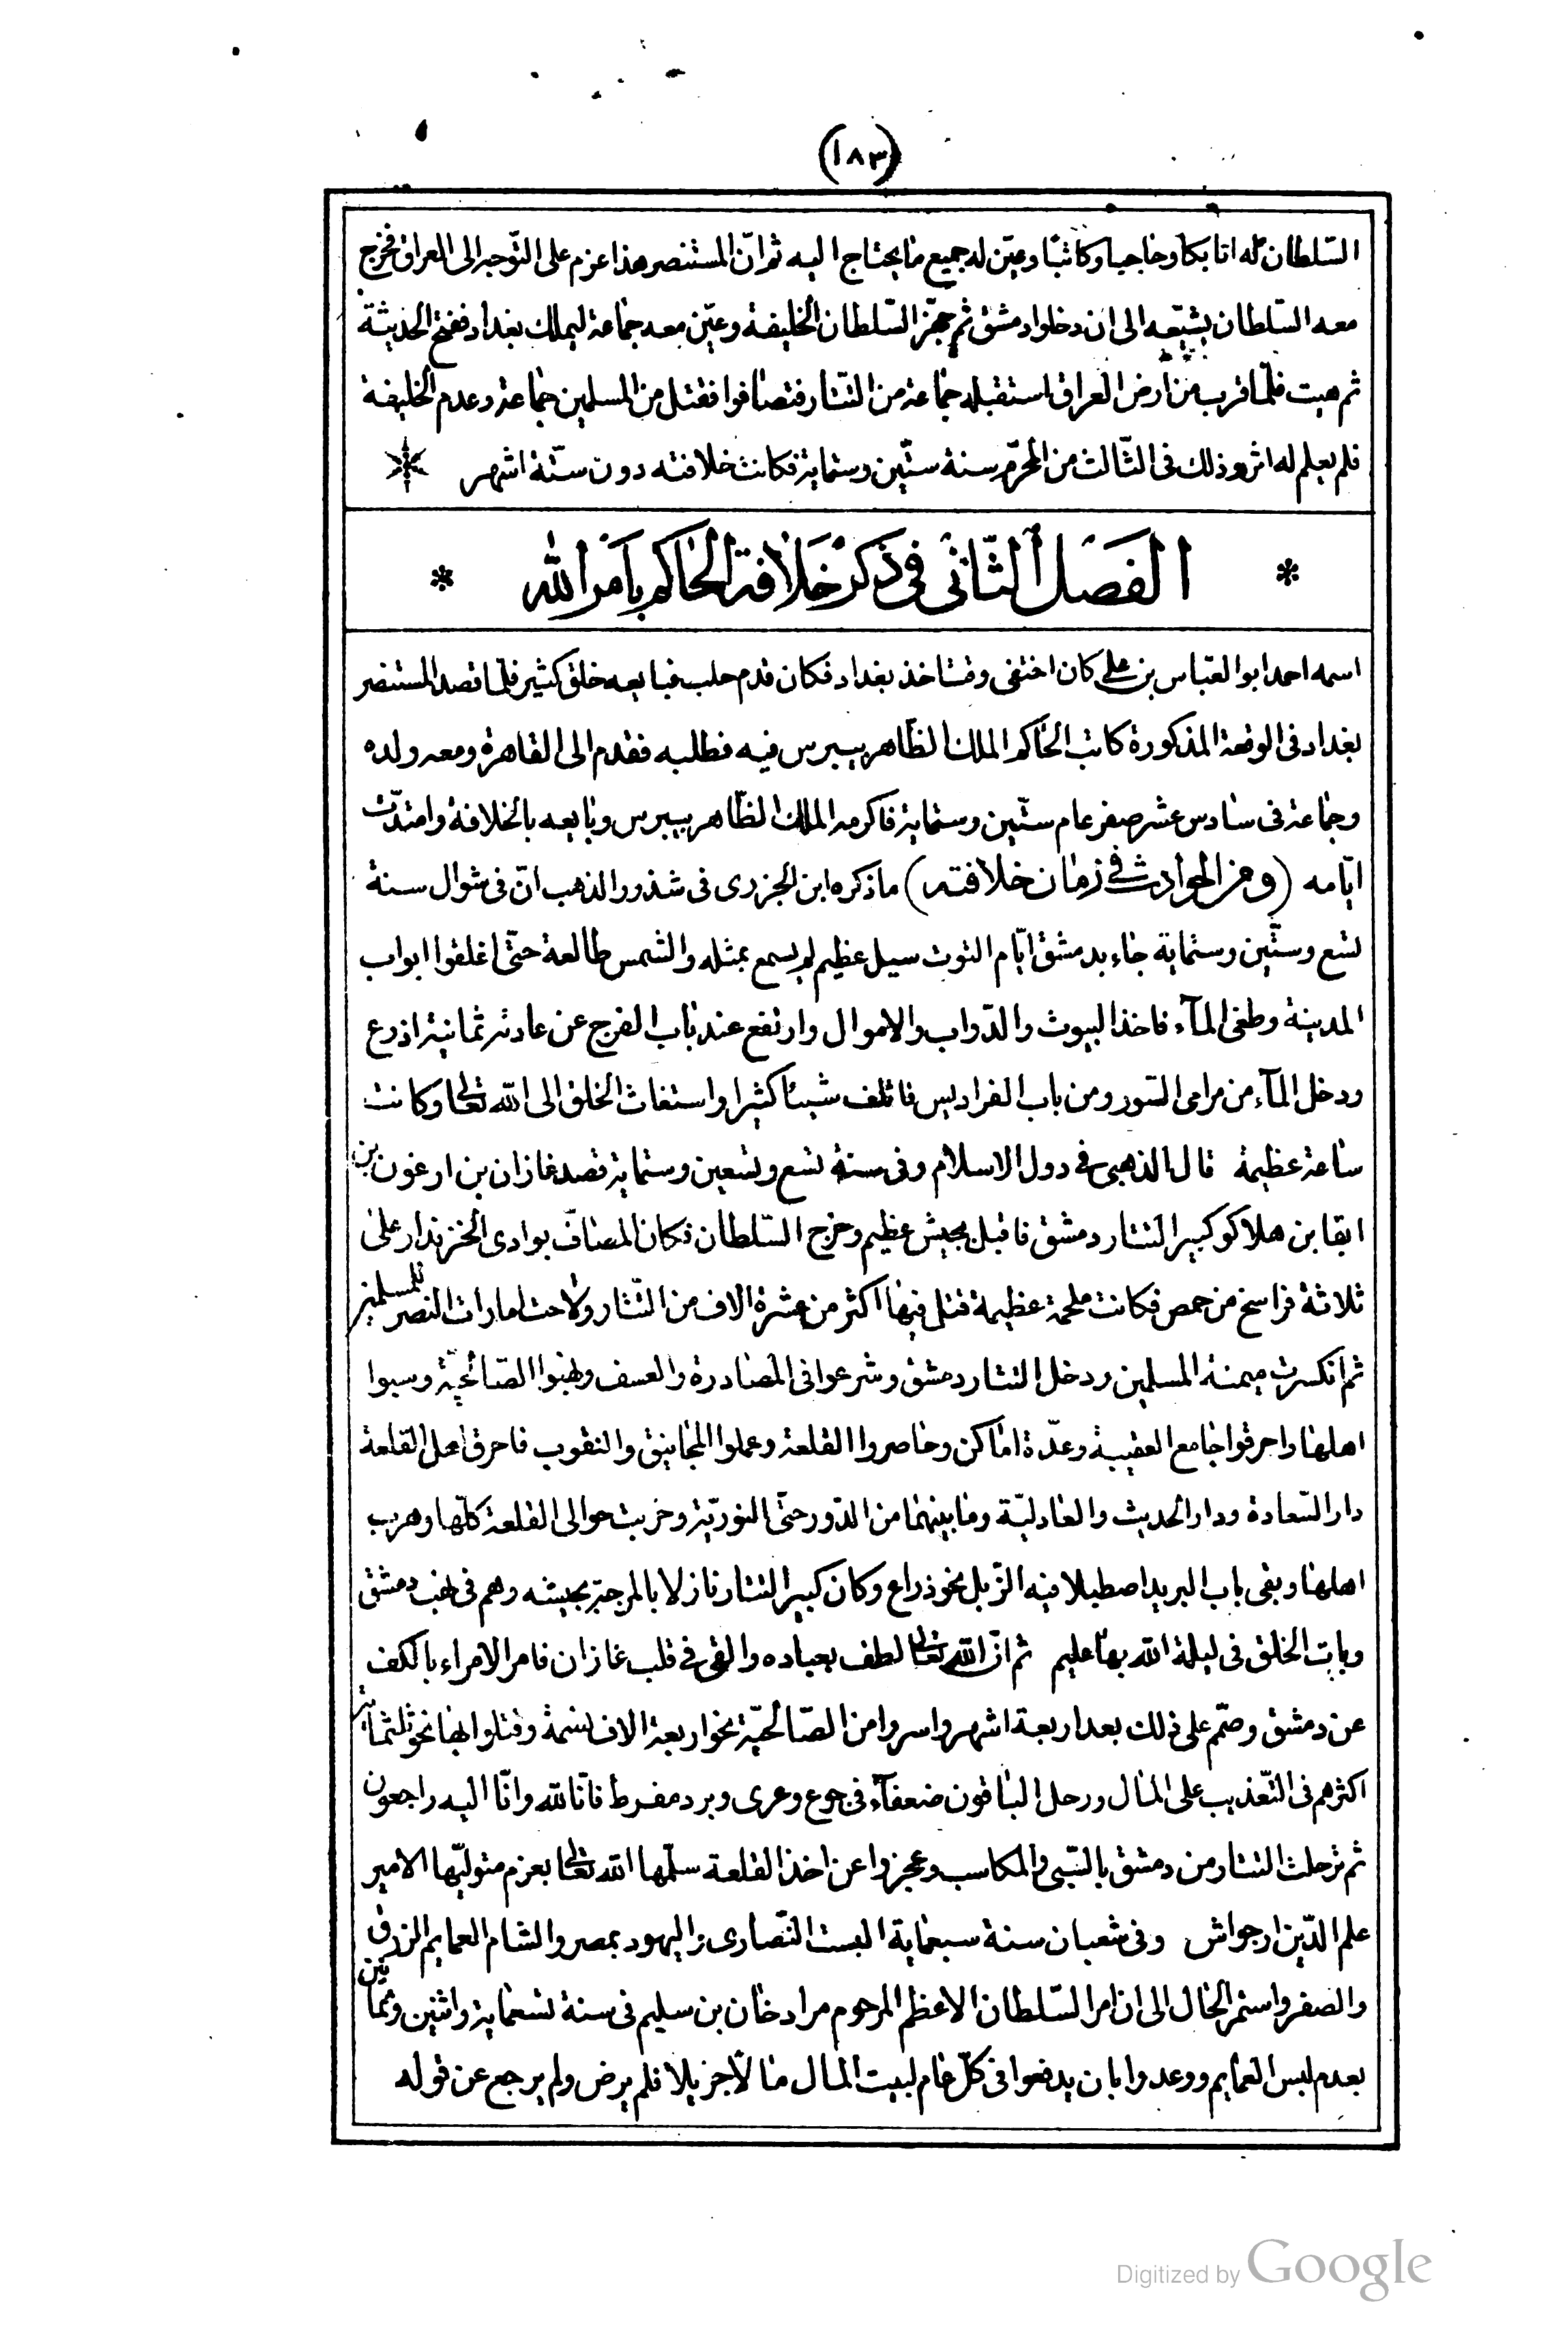 (١٨٣)
السّلطان له اتابكا وحاجبا وكاتبا وعيّن له جميع ما يحتاج اليه ثم انّ المستنصر هذا عزم على التّوجه الى العراق فخرج
معه السّلطان يشيّعه الى ان دخلوا دمشق ثم جهّز السّلطان الخليفة وعيّن معه جماعة ليملك بغداد ففتح الحديثة
ثم هيت فلمّا قرب من ارض العراق استقبله جماعة من التّتار فتصافوا فقتل من المسلمين جماعة وعدم الخليفة
فلم يعلم له اثر وذلك فى الثّالث من المحرّم سنة ستّين وستماية فكانت خلافته دون ستّة اشهر
* الفصل الثّانى فى ذكر خلافة الحاكم بامر الله *
اسمه احمد ابو العبّاس بن على كان اختفى وقت اخذ بغداد فكان قدم حلب فبايعه خلق كثير فلمّا قصد المستنصر
بغداد فى الوقعة المذكورة كاتب الحاكم الملك الظّاهر بيبرس فيه فطلبه فقدم الى القاهرة ومعه ولده
وجماعة فى سادس عشر صفر عام ستّين وستماية فاكرمه الملك الظّاهر بيبرس وبايعه بالخلافة وامتدّت
ايّامه (ومن الحوادث فى زمان خلافته) ما ذكره ابن الجزرى فى شذور الذهب انّ فى شوال سنة
تسع وستّين وستماية جاء بدمشق ايّام التوت سيل عظيم لم يسمع بمثله والشمس طالعة حتّى اغلقوا ابواب
المدينة وطغى المآء فاخذ البيوت والدّواب والاموال وارتفع عند باب الفرج عن عادته ثمانية اذرع
ودخل المآء من مرامى السّور ومن باب الفراديس فاتلف شيئا كثيرا واستغاث الخلق الى الله تعالى وكانت
ساعة عظيمة قال الذهبى فى دول الاسلام وفى سنة تسع وتسعين وستماية قصد غازان بن ارغون بن
ابقا بن هلاكو كبير التتار دمشق فاقبل بجيش عظيم وخرج السّلطان فكان المصافّ بوادى الخزندار على
ثلاثة فراسخ من حمص فكانت ملحمة عظيمة قتل فيها اكثر من عشرة الاف من التّتار ولاحت امارات النصر للمسلمين
ثم انكسرت ميمنة المسلمين ودخل التتار دمشق وشرعوا فى المصادرة والعسف ونهبوا الصّالحيّة وسبوا
اهلها واحرقوا جامع العقيبة وعدّة اماكن وحاصروا القلعة وعملوا المجانيق والنقوب فاحرق اهل القلعة
دار السّعادة ودار الحديث والعادليّة وما بينهما من الدّور حتّى النوريّة وخربت حوالى القلعة كلّها وهرب
اهلها وبقى باب البريد اصطبلا فيه الزّبل نحو ذراع وكان كبير التتار نازلا بالمرجة بجيشه وهم فى نهب دمشق
وبات الخلق فى ليلة الله بها عليم ثم انّ الله تعالى لطف بعباده والقى فى قلب غازان فامر الامراء بالكف
عن دمشق وصمّم على ذلك بعد اربعة اشهر واسروا من الصّالحيّة نحو اربعة الاف نسمة وقتلوا بها نحو ثلثماية
اكثرهم فى التّعذيب على المال ورحل الباقون ضعفآء فى جوع وعرى وبرد مفرط فانّا لله وانّا اليه راجعون
ثم ترحلت التتار من دمشق بالسّبى والمكاسب وعجزوا عن اخذ القلعة سلّمها الله تعالى بعزم متوليّها الامير
علم الدّين ارجواش وفى شعبان سنة سبعماية البست النّصارى واليهود بمصر والشام العمايم الزرق
والصفر واستمر الحال الى ان امر السّلطان الاعظم المرحوم مراد خان بن سليم فى سنة تسعماية واثنين وثمانين
بعدم لبس العمايم ووعدوا بان يدفعوا فى كلّ عام لبيت المال مالا جزيلا فلم يرض ولم يرجع عن قوله
Digitized by Google